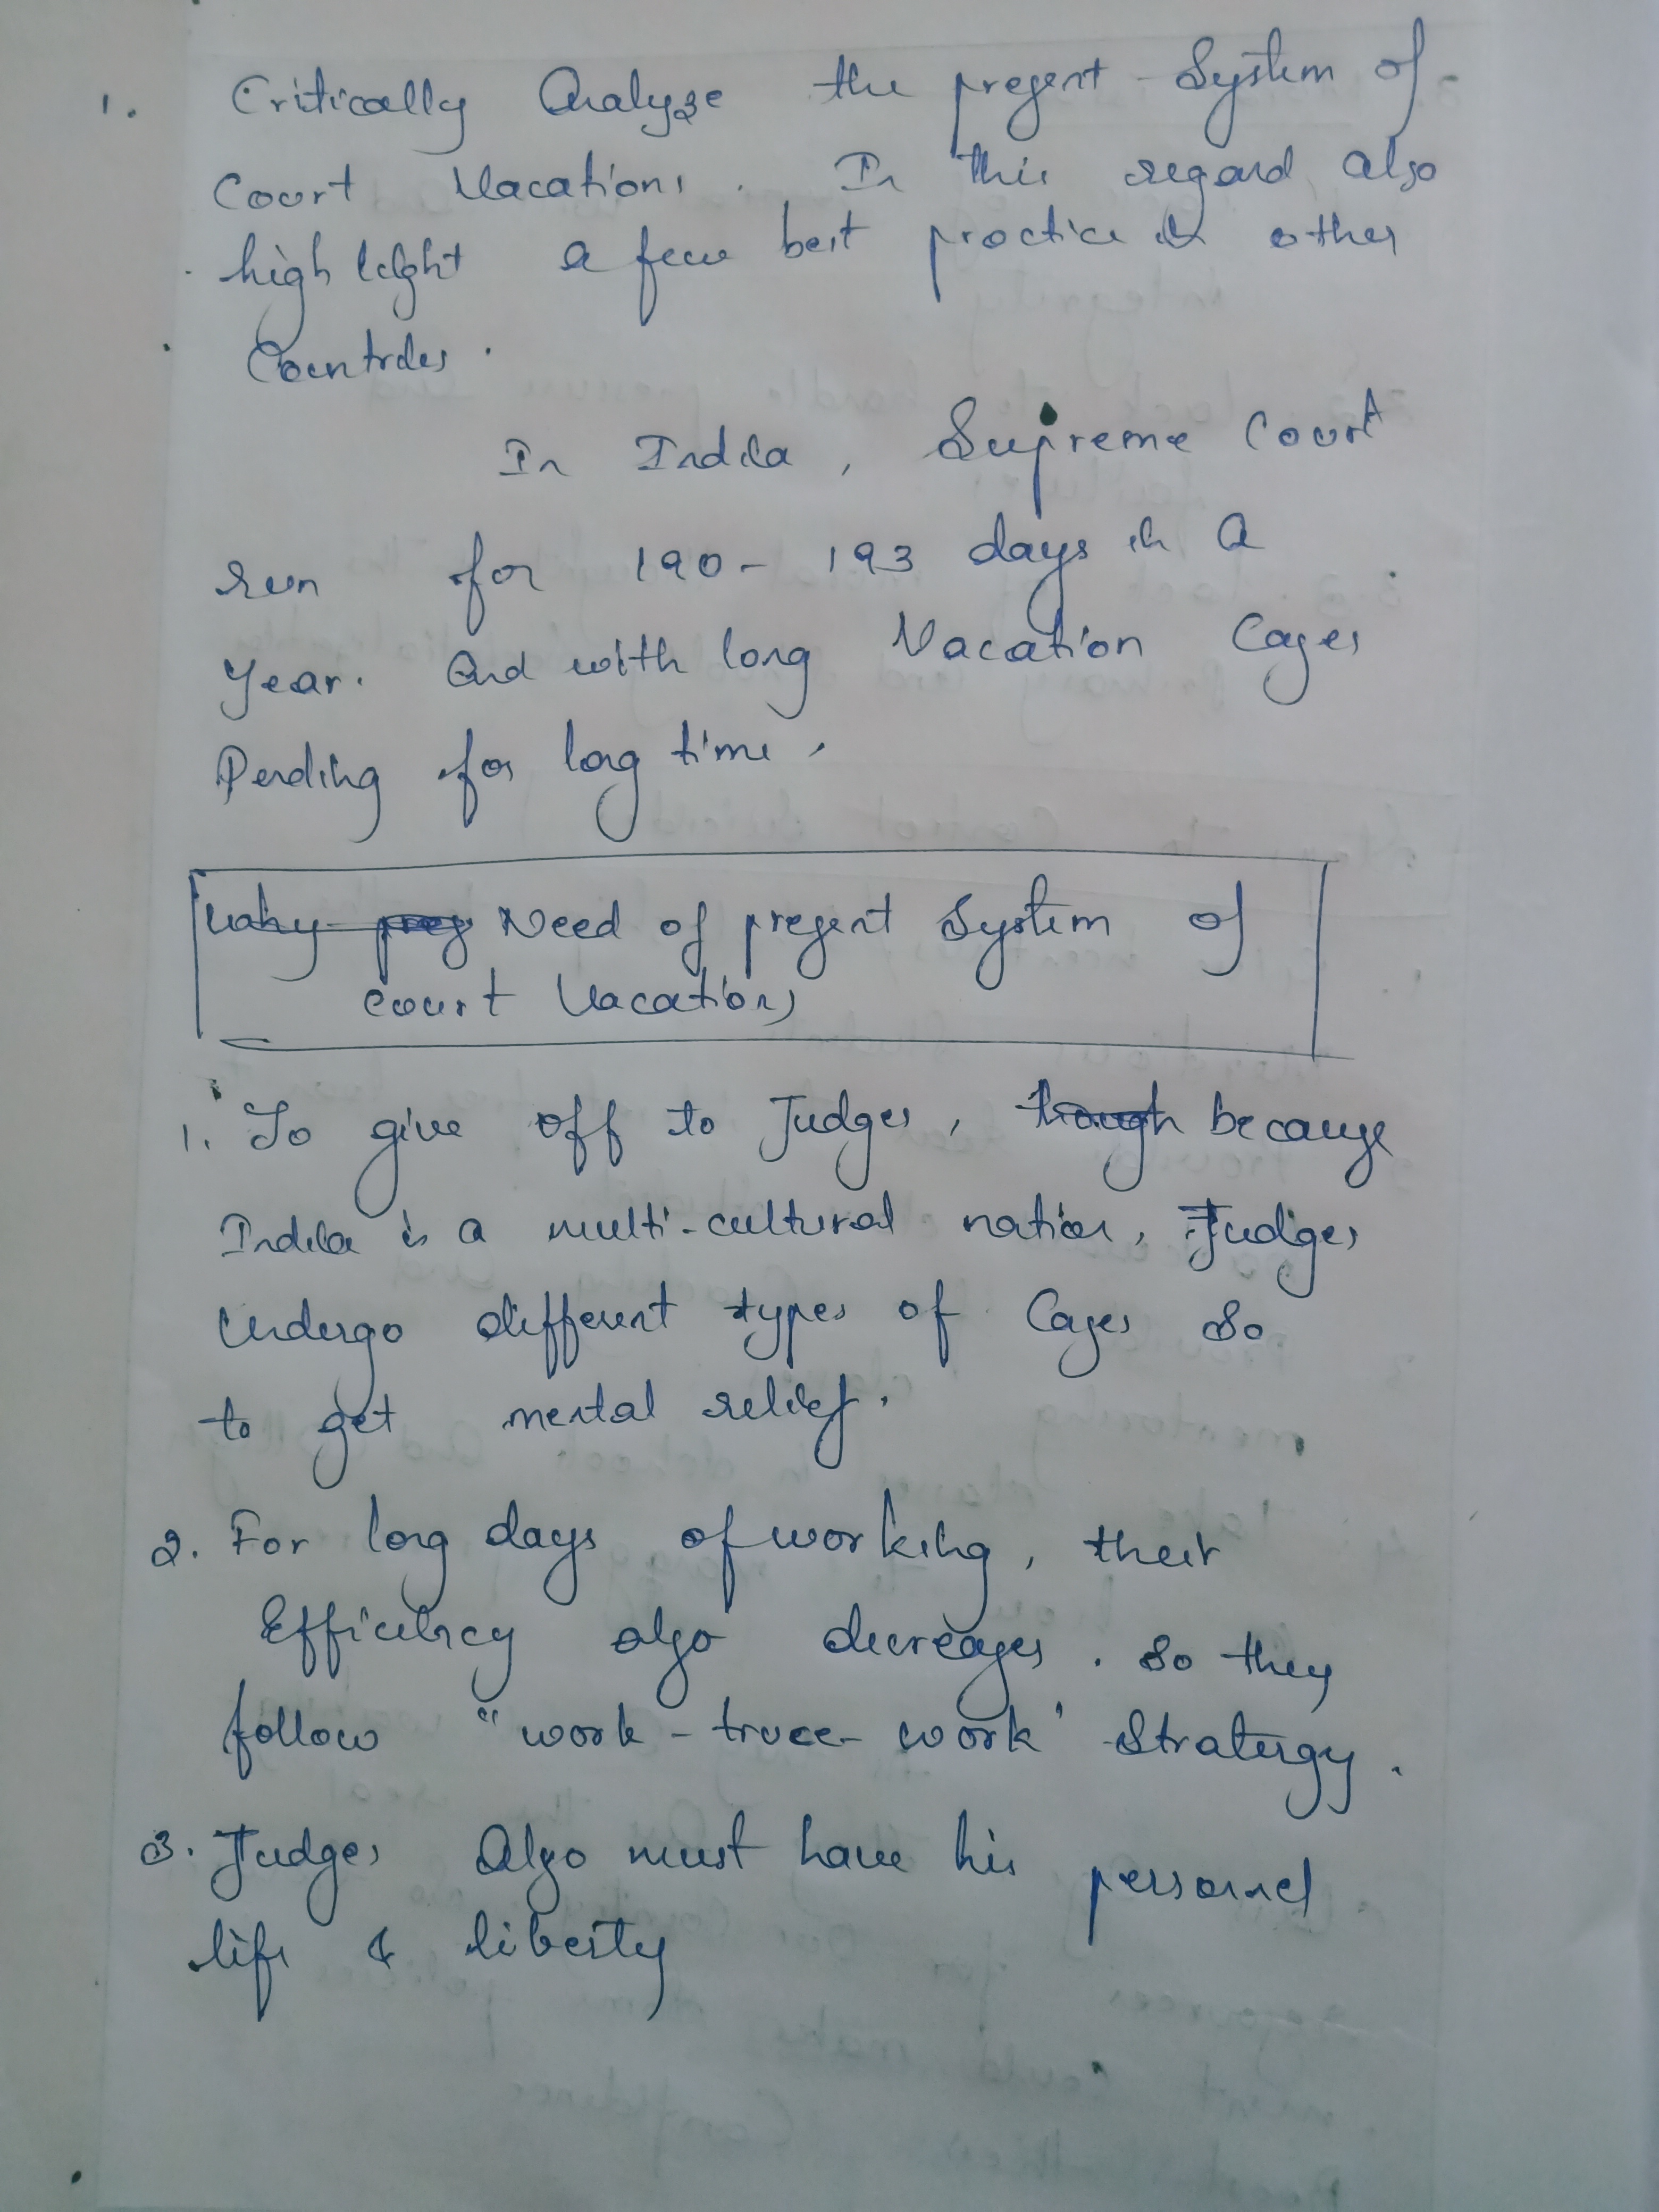 1. Critically Analyze the present System of
Court Vacations. In this regard also
highlight a few best practice in other
Countries.
In India, Supreme Court
run for 190-193 days in a
year. And with long Vacation Cases
Pending for long time.
Need of present System of
court Vacations
1. To give off to Judges, though because
India is a multi-cultural nation, Judges
undergo different types of Cases so
to get mental relief.
2. For long days of working, their
Efficiency also decreases. So they
follow "work-truce-work' Stratergy.
3. Judges Also must have his personel
life & liberty